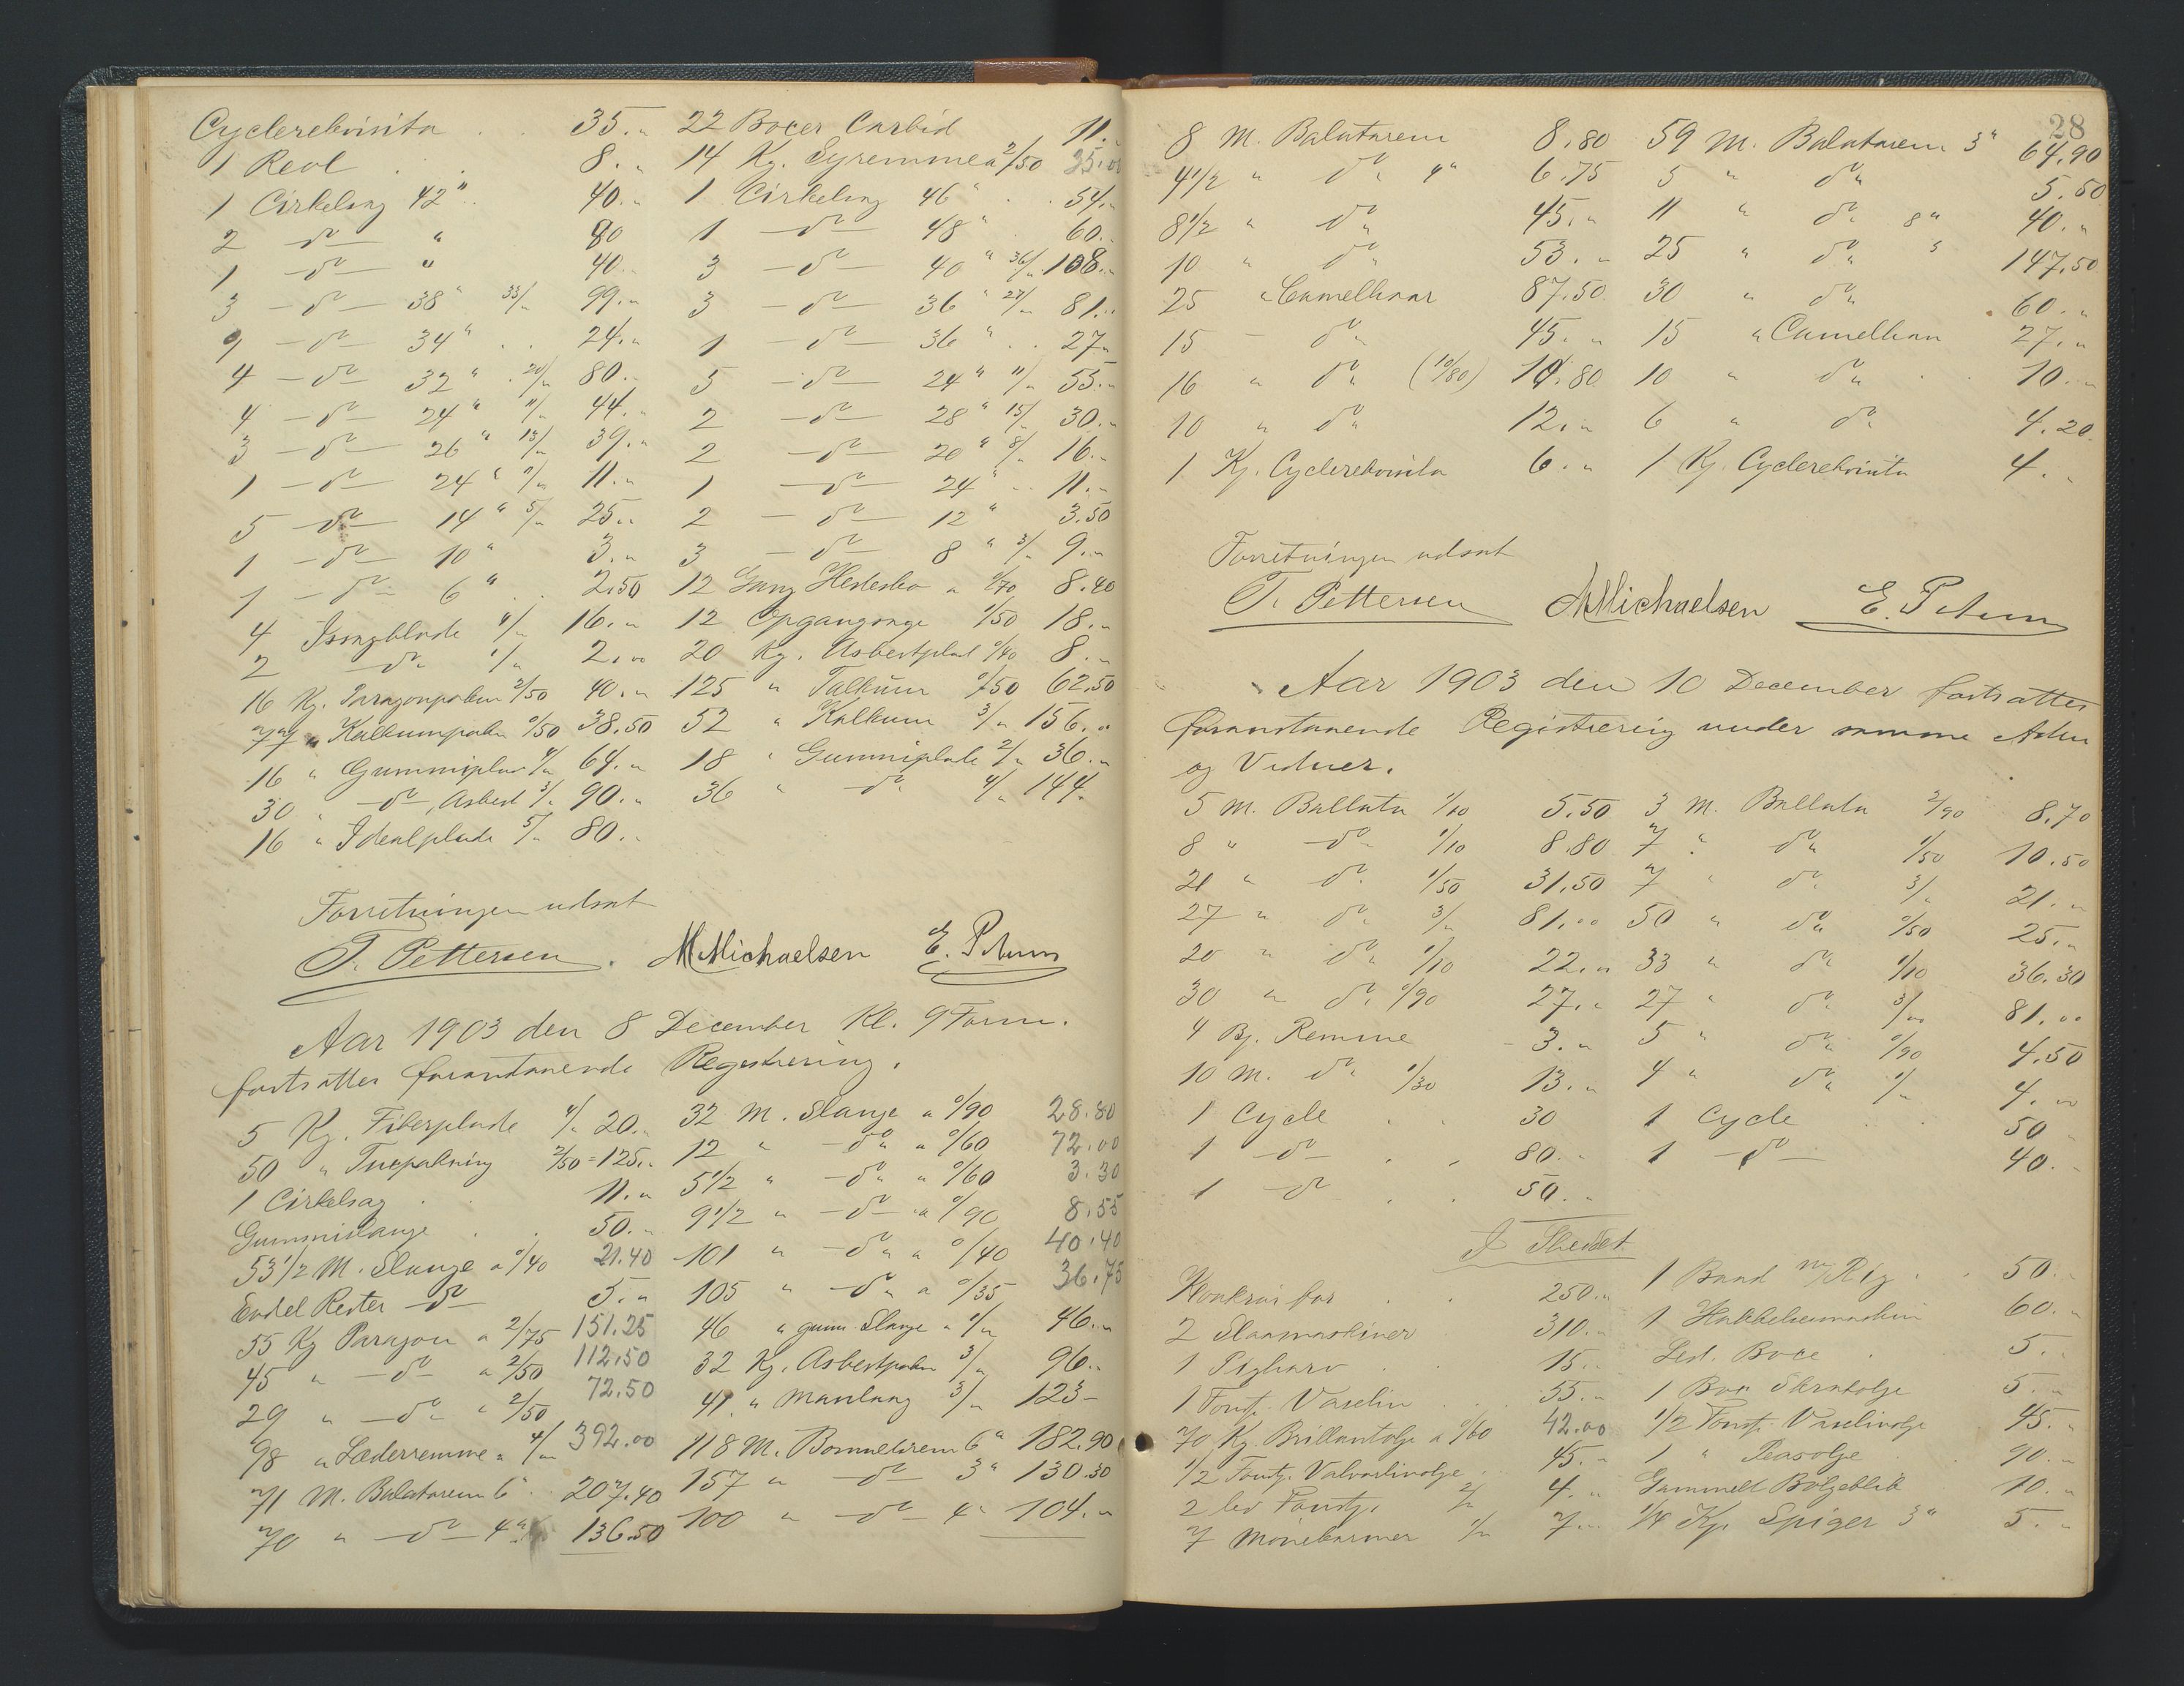 Cyclerekvisita . . 35.„ 22 Boxer Carbid 11.„
1 Reol . . 8.„ 14 Kg. Syremme a 2/50 35.00
1 Cirkelsag 42" . . 40.„ 1 Cirkelsag 46" . . 54.„
2 —do— " 80 1 —do— 48" 60.„
1 —do— " 40.„ 3 —do— 40" 36/„ 108.„
3 —do— 38" 33/„ 99.„ 3 —do— 36" 27/„ 81.„
1 —do— 34" . . 24.„ 1 —do— 36" . . 27„
4 —do— 32" 20/„ 80.„ 5 —do— 24" 11/„ 55.„
4 —do— 24" 11/„ 44.„ 2 —do— 28" 15/„ 30.„
3 —do— 26" 13/„ 39.„ 2 —do— 20" 8/„ 16.„
1 —do— 24" 11/„ 11.„ 1 —do— 24" . . 11.„
5 —do— 14" 5/„ 25.„ 2 —do— 12" 3.50
1 —do— 10" 3.„ 3 —do— 8" 3/„ 9.„
1 —do— 6" . . 2.50 12 Gang Hestesko a 0/70 8.40
4 Isagblade 4/„ 16.„ 12 Opgangsage 1/50 18.„
2 —do„ 1/„ 2.00 20 Kg. Asbestplad 0/40 8.„
16 Kg. Paragonpakn 2/50 40.„ 125 „ Talkum 0/50 62.50
77 „ Kalkumpakn 0/50 38.50 52 „ Kalkum 3/„ 156.„
16 „ Gummiplad 4/„ 64.„ 18 „ Gummiplade 2/„ 36.„
30 „ —do—, Asbest 3/„ 90.„ 36 „ do„ 4/„ 144.
16 „ Idealplade 5/„ 80.„
Forretningen udsat
T. Pettersen. MMichaelsen E. Petersen
Aar 1903 den 8 December Kl. 9 Form.
fortsattes foranstaaende Registrering.
5 Kg. Fiberplade 4/„ 20.„ 32 M. Slange a 0/90 28.80
50 „ Tuepakning 2/50 = 125.„ 12 „ —do„ a 0/60 72.00
1 Cirkelsag . . 11.„ 5 1/2 „ —do„ „ 0/60 3.30
Gummislange . . 50.„ 9 1/2 „ —do— a 0/90 8.55
53 1/2 M. Slange a 0/40 21.40 101 „ —do„ a 0/40 40.40
Endel Rester do 5.„ 105 „ —do„ a 0/35 36.75
55 Kg Paragon a 2/75 151.25 46 „ gum. Slange a 1/„ 46.„
45 „ —do— a 2/50 112.50 32 Kg. Asbestpakn 3/„ 96.„
29 „ —do— „ 2/50 72.50 41 „ Manlang 3/„ 123—
98 „ Læderremme a 4/„ 392.00 118 M. Bomuldsrem 6" 182.90
71 M. Balatarem 6" . . 207.40 157 „ —do— 3" 130.30
70 „ —do— 4" 136.50 100 „ —do— 4" 104.„
28
8 M. Balatarem 8.80 59 M. Balatarem 3" 64.90
4 1/2 „ do„ 4" 6.75 5 „ do„ 5.50
8 1/2 „ do„ 45.„ 11 „ do„ 8" 40.„
10 „ do„ 53.„ 25 „ do„ " 147.50
25 „ Camelhaar 87.50 30 „ do„ 60.„
15 — do„ 45.„ 15 „ Camelhaar 27.„
16 „ do„ (10/80) 10.80 10 „ do„ . . 10.„
10 „ do„ 12.„ 6 „ do„ 4.20
1 Kg. Cyclerekvisita 6.„ 1 Kg. Cyclerekvisita 4.„
Forretningen udsat
T. Pettersen MMichaelsen E. Petersen
Aar 1903 den 10 December fortsattes
foranstaaende Registrering under samme Adm
og Vidner.
5 M. Ballata 1/10 5.50 3 M. Ballata 2/90 8.70
8 „ —do— 1/10 8.80 7 „ do„ 1/50 10.50
21 „ do„ 1/50 31.50 7 „ do„ 3/ 21.„
27 „ do„ 3/„ 81.00 50 „ do„ 0/50 25.„
20 „ do„ 1/10 22.„ 33 „ do„ 1/10 36.30
30 „ do„ 0/90 27.„ 27 „ do„ 3/00 81.00
4 Bj. Remme 3.„ 5 „ do„ 0/90 4.50
10 M. do„ 1/30 13.„ 4 „ do„ 1/„ 4.00
1 Cycle . . 30 1 Cycle . . 50
1 —do— . . 80.„ 1 —do— 40.„
1 —do— . . 50.„
I Skuddet
250.„ 1 Baad m/Rig . . 50.„
2 Slaamaskiner 310.„ 1 Hakkelsemaskin 60.„
1 Pigharv . . 15.„ Led. Boxe . 5.„
1 Foust. Vaselin . . 55.„ 1 Box 5.„
70 Kg. Brillantolje a 0/60 42.00 1/2 Foust. Vaselinolje 45.„
1/2 Foustj. Valvaslinolje . . 45.„ 1 „ 90.„
2 lev Foustj. 2/„ 4.„ Gammelt Bølgeblik 10.„
7 Mønekarmer 1/„ 7.„ 1/4 Kg. Spiger 3" 5.„